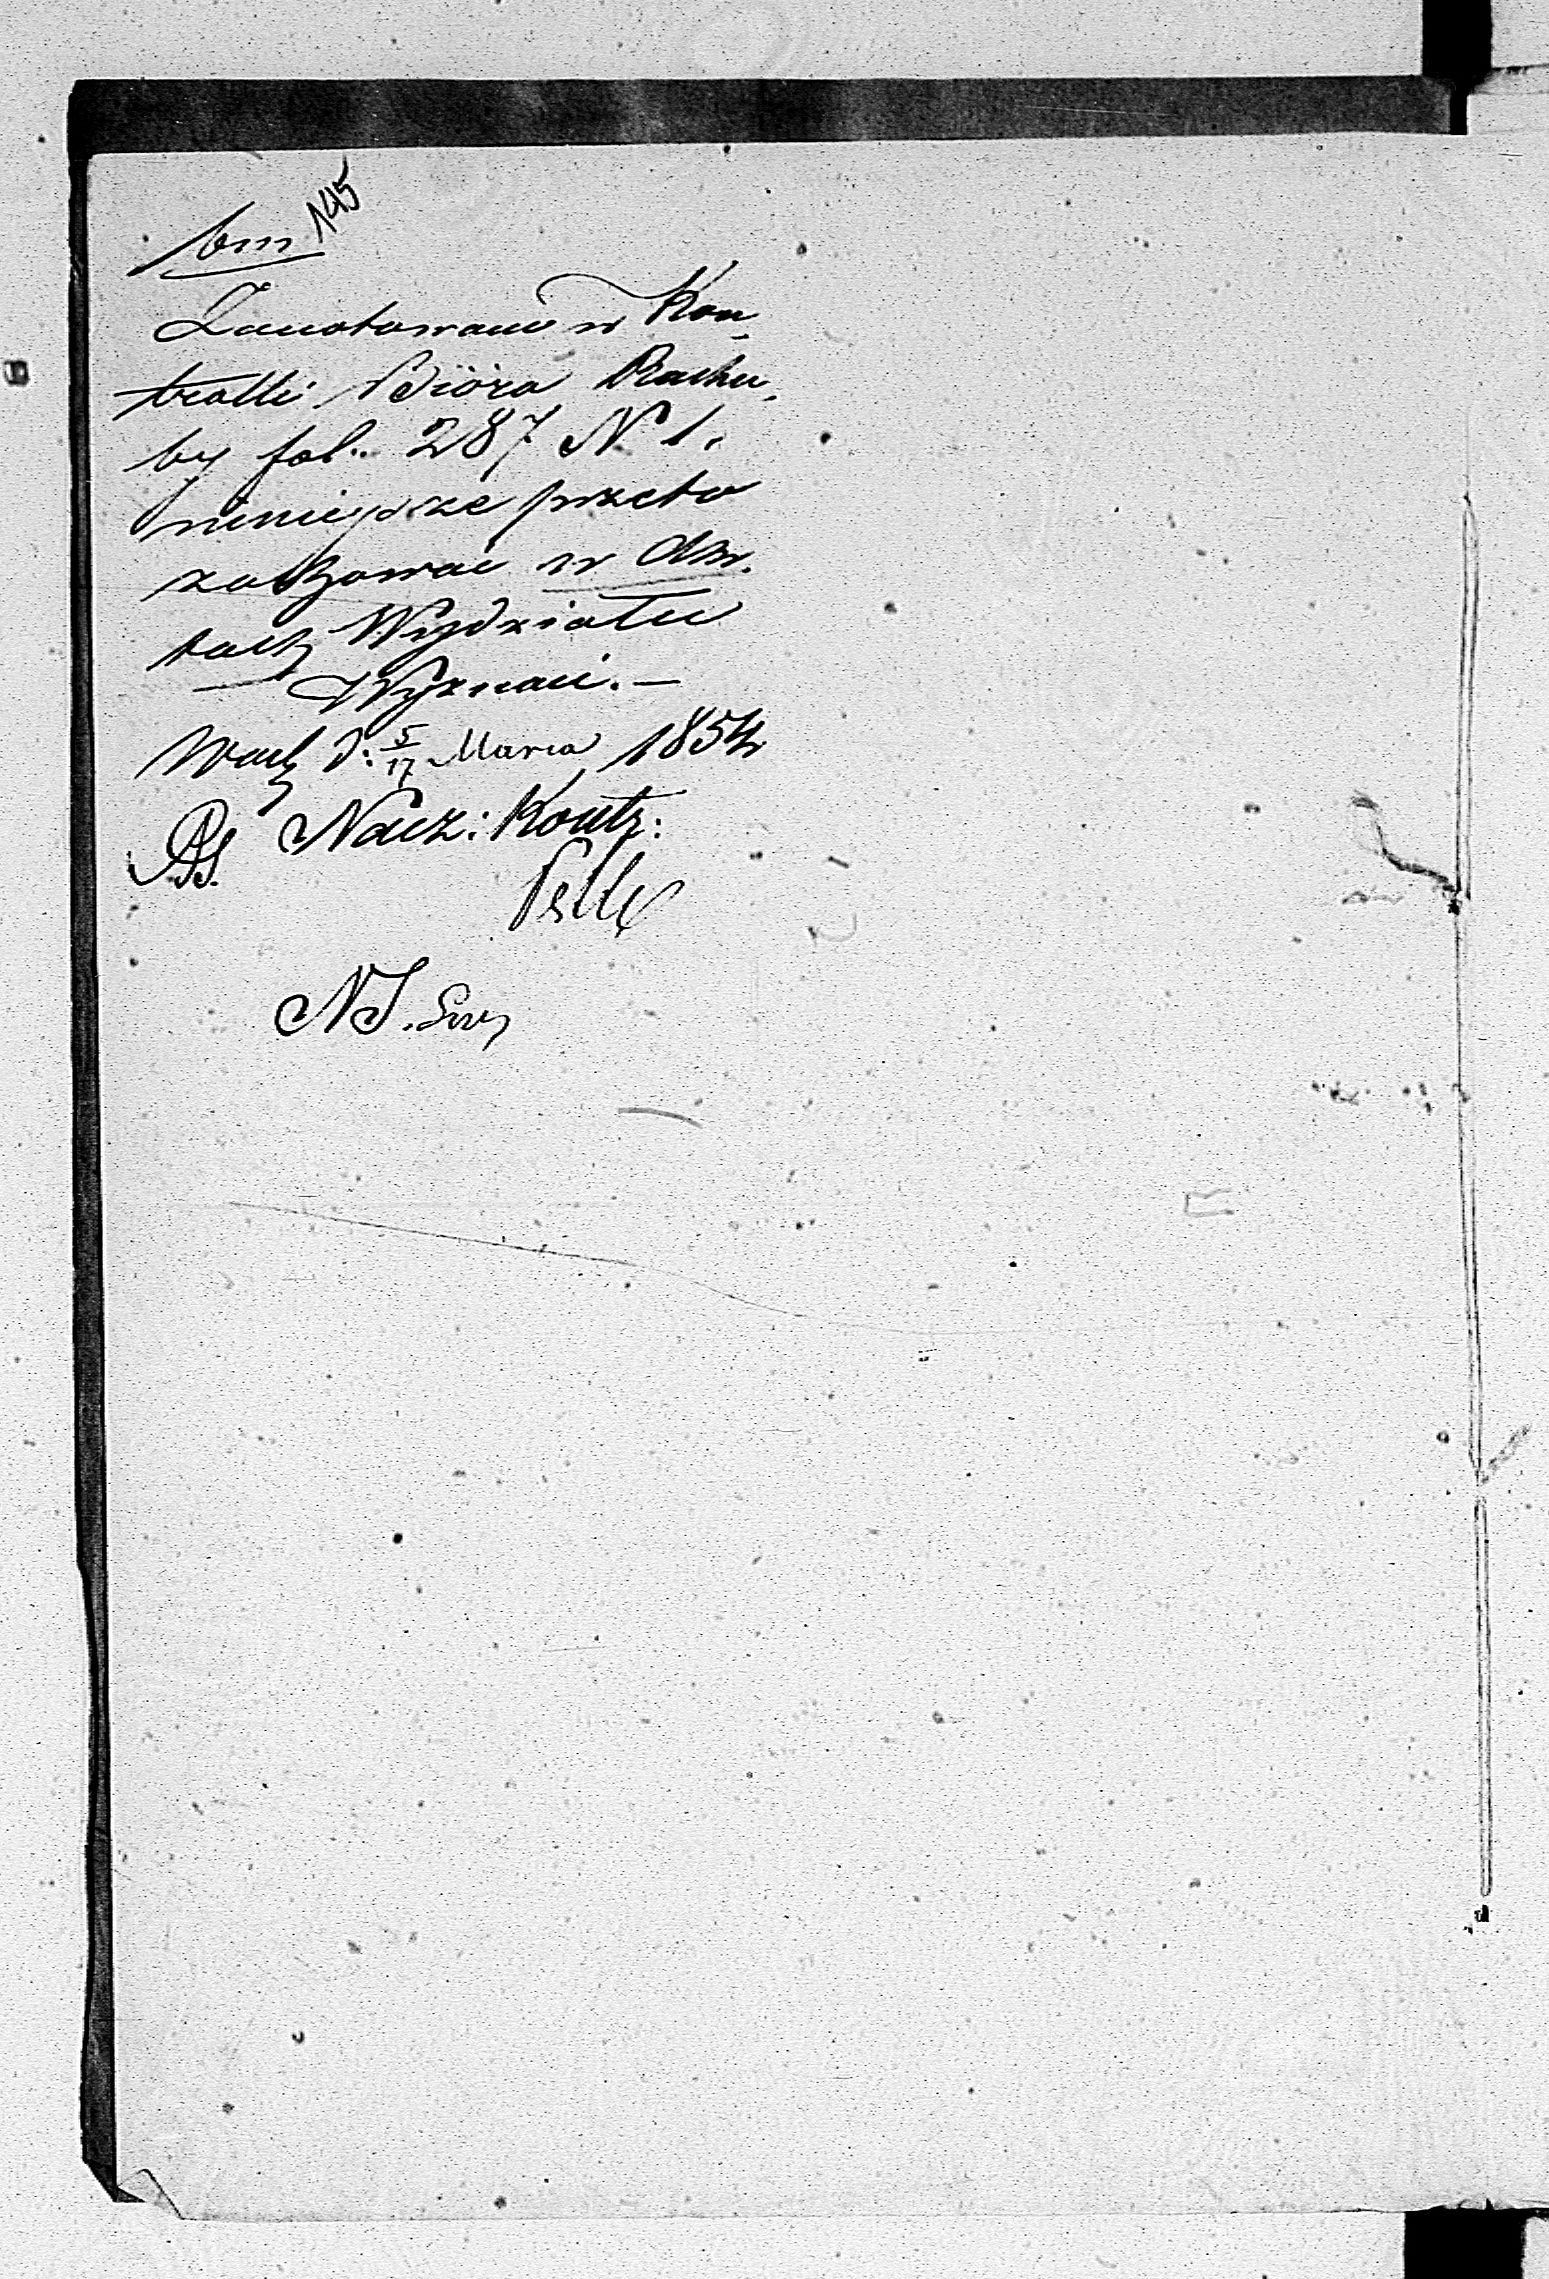 145
bm
Zanotowano w Kon-
trolli Bióra Rachu-
by fol. 287 N 1.
niniejsze przeto
zachować w Ak-
tach Wydziału
Wyznań. —
Wach d: 5/17 Marca 1854
Nacz: Kontr:
NS.